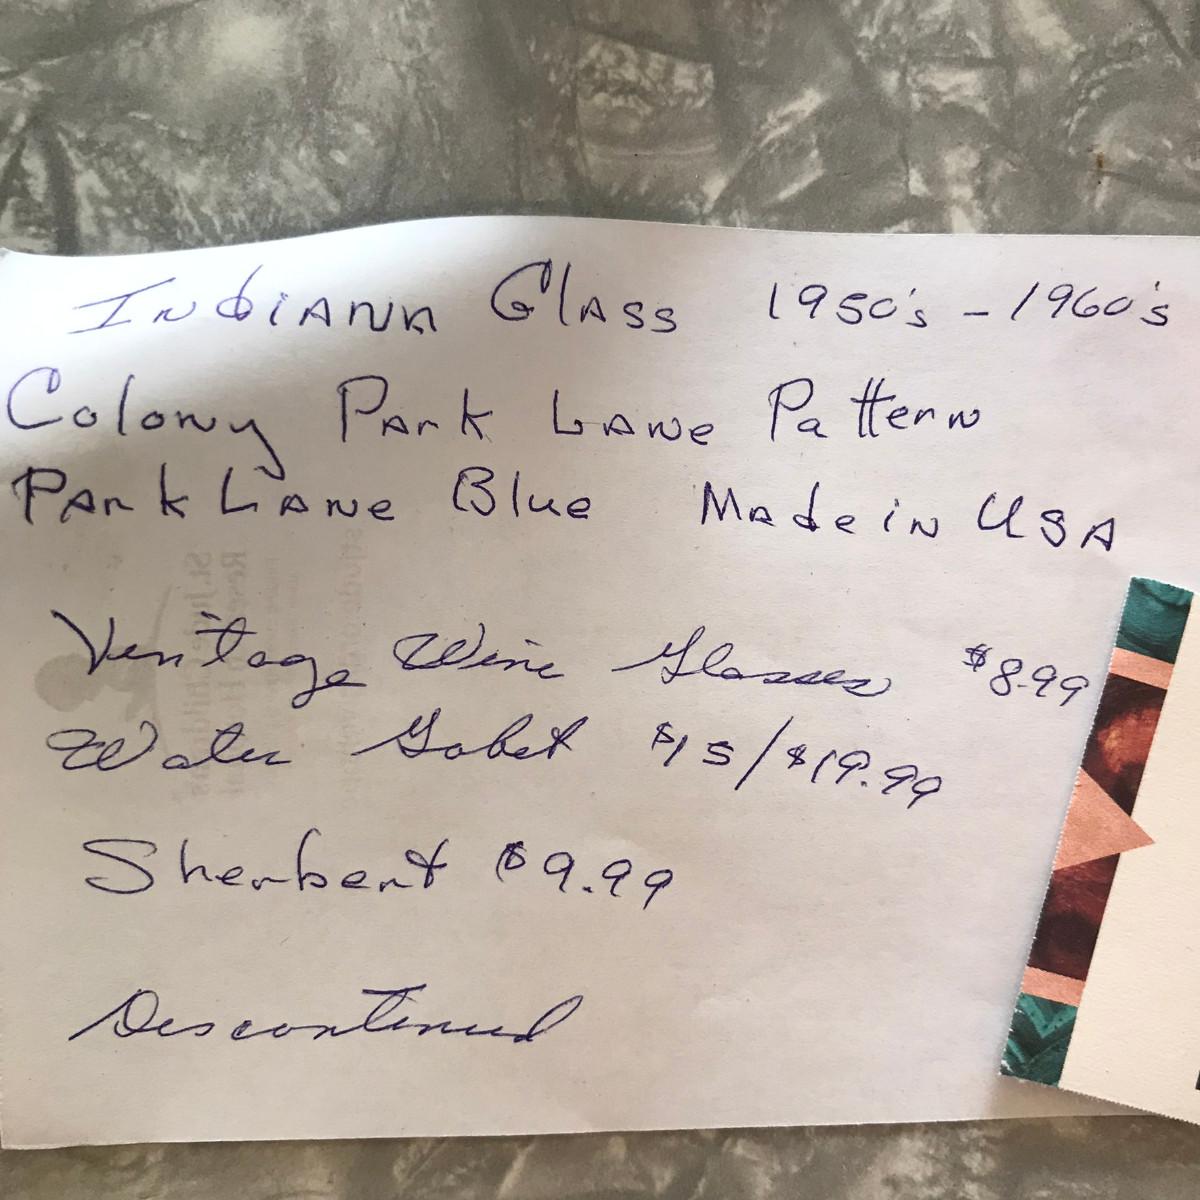 Indiana Glass 1950's - 1960's
Colony Park Lane Pattern
Park Lane Blue Made in USA
Vintage Wine Glasses $8.99
Water Gobet $15/$19.99
Sherbert $9.99
Discontinued